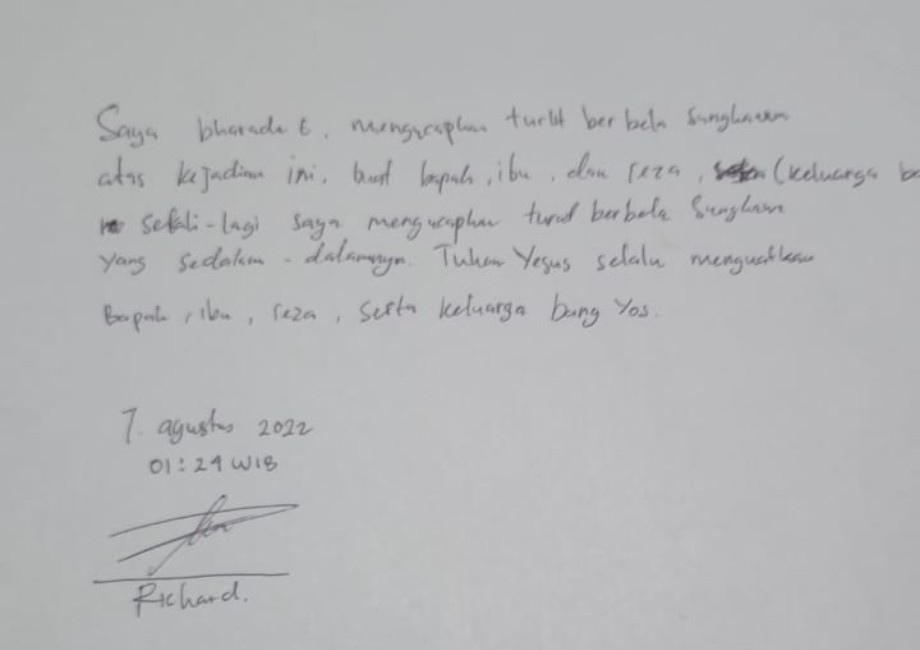 Saya bharada E, mengucapkan turut berbela Sungkawa
atas kejadian ini, buat bapak, ibu, dan reza, (keluarga ba
sekali-lagi saya mengucapkan turut berbela Sungkawa
yang sedalam-dalamnya. Tuhan Yesus selalu menguatkan
Bapak, ibu, reza, serta keluarga bang Yos.
7. agustus 2022
01:24 WIB
Richard.